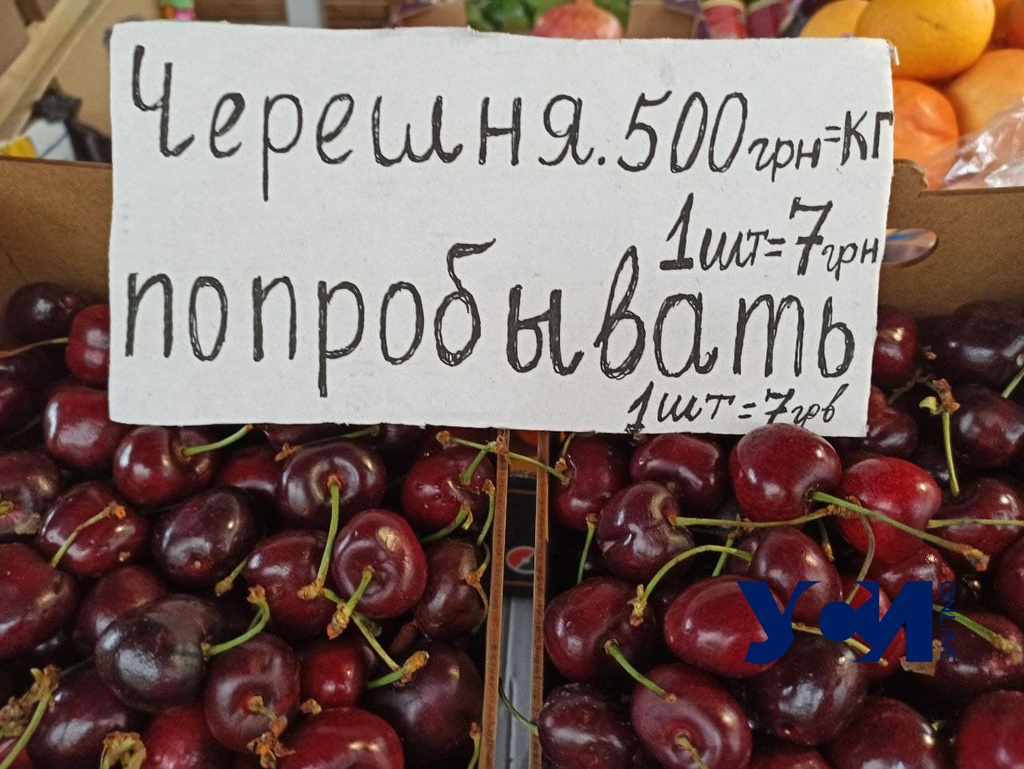 Черешня. 500грн=кг
1шт=7грн
попробывать
1шт=7грв
УСИ
ONLINE